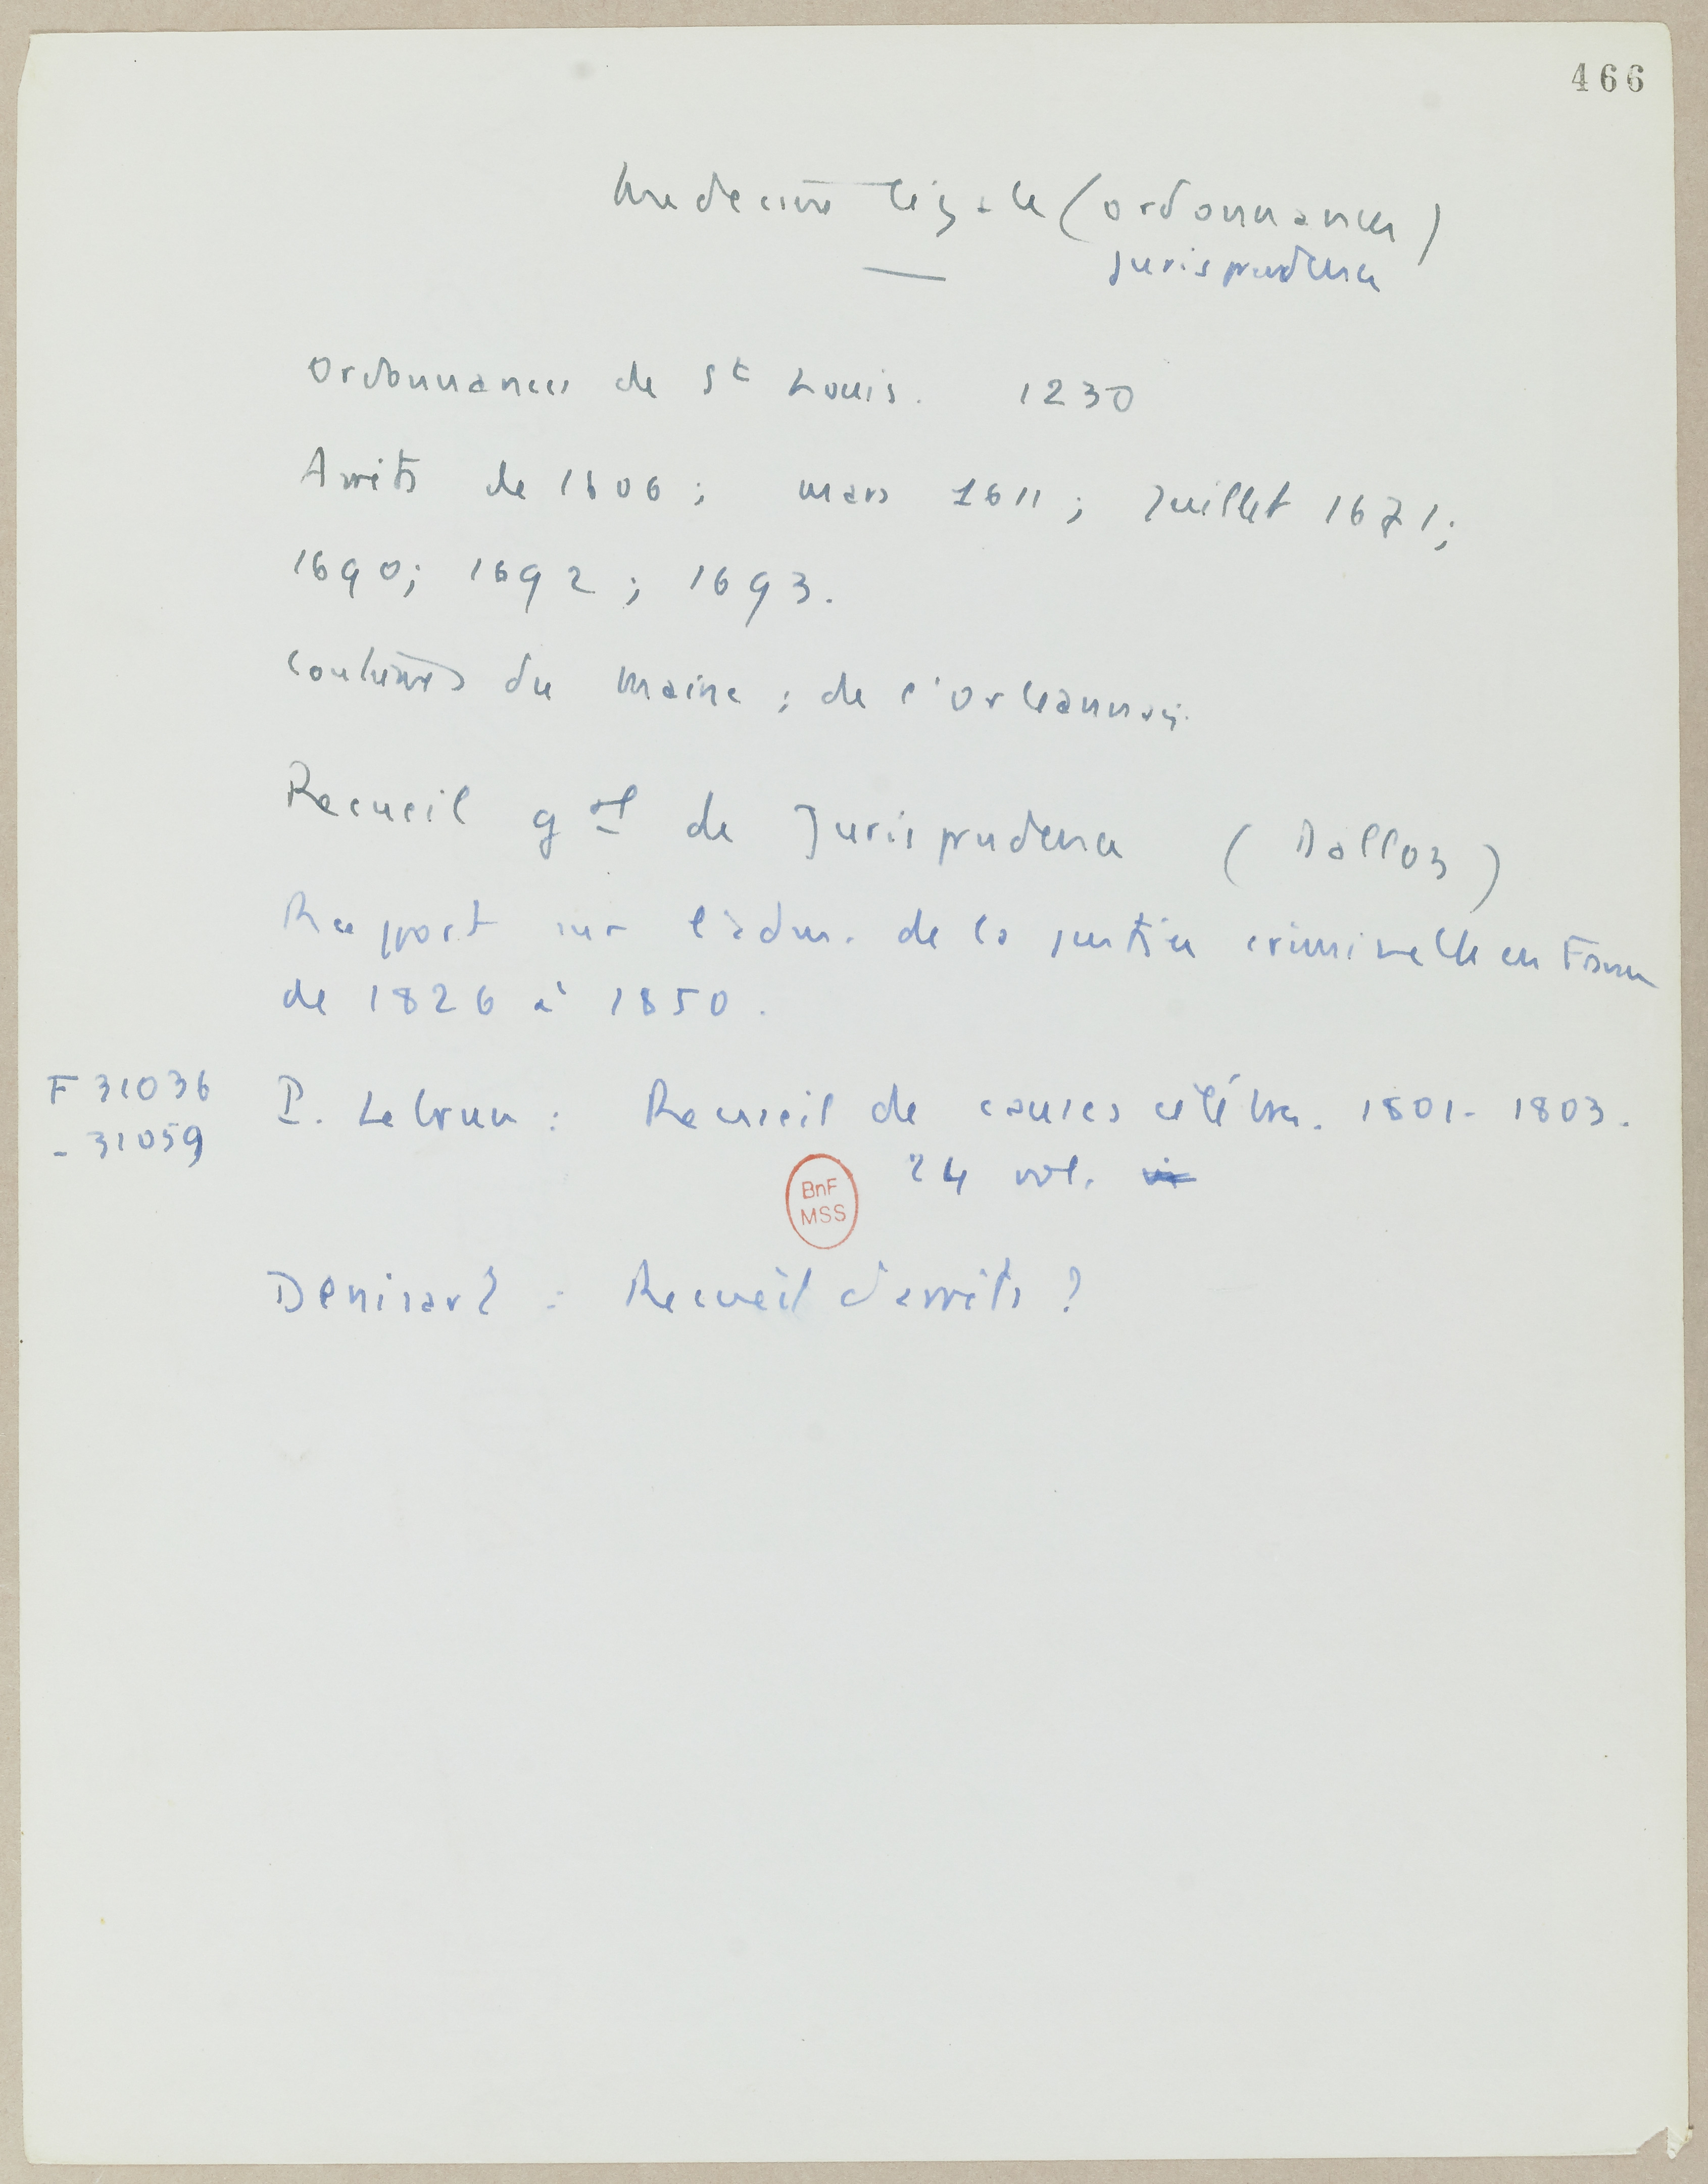 466
Médecine légale (ordonnances)
jurisprudence
Ordonnances de St Louis. 1230
Arrêts de 1606 ; mars 1611 ; Juillet 1671 ;
1690 ; 1692 ; 1693.
Coutumes du Maine ; de l'Orléannais.
Recueil gal de Jurisprudence (Dalloz)
Rapport sur l'adm. de la justice criminelle en France
de 1826 à 1850.
F 31036 P. Lebrun : Recueil de causes célèbres. 1801-1803.
- 31059
24 vol.
BnF
MSS
Denisart : Recueil d'arrêts ?